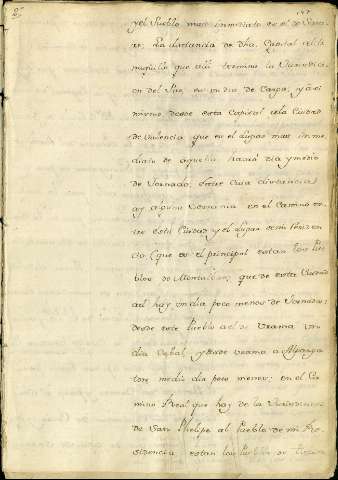 y el Pueblo mas inmediato es el de
La distancia de dha. Capital a la
que alli termina la Jurisdicci
on del Sur, es un dia de Carga, y a el
mismo desde esta Capital a la Ciudad
de Valencia que es el Lugar mas inme
diato de aquella hacia dia y medio
de Jornada, entre cuia distancia
ay alguna Serrania en el Camino en
tre esta Ciudad y el Lugar de mi
cia (que es el principal estan los Pue
blos de Montalban, que de esta Ciudad
a el hay un dia poco menos de Jornada;
desde este Pueblo a el de Urama un
dia cabal, y desde Urama a Alparga
ton medio dia poco menos; en el Ca
mino Real que hay de la
de San Phelipe al Pueblo de mi Re
sidencia estan los Pueblos de